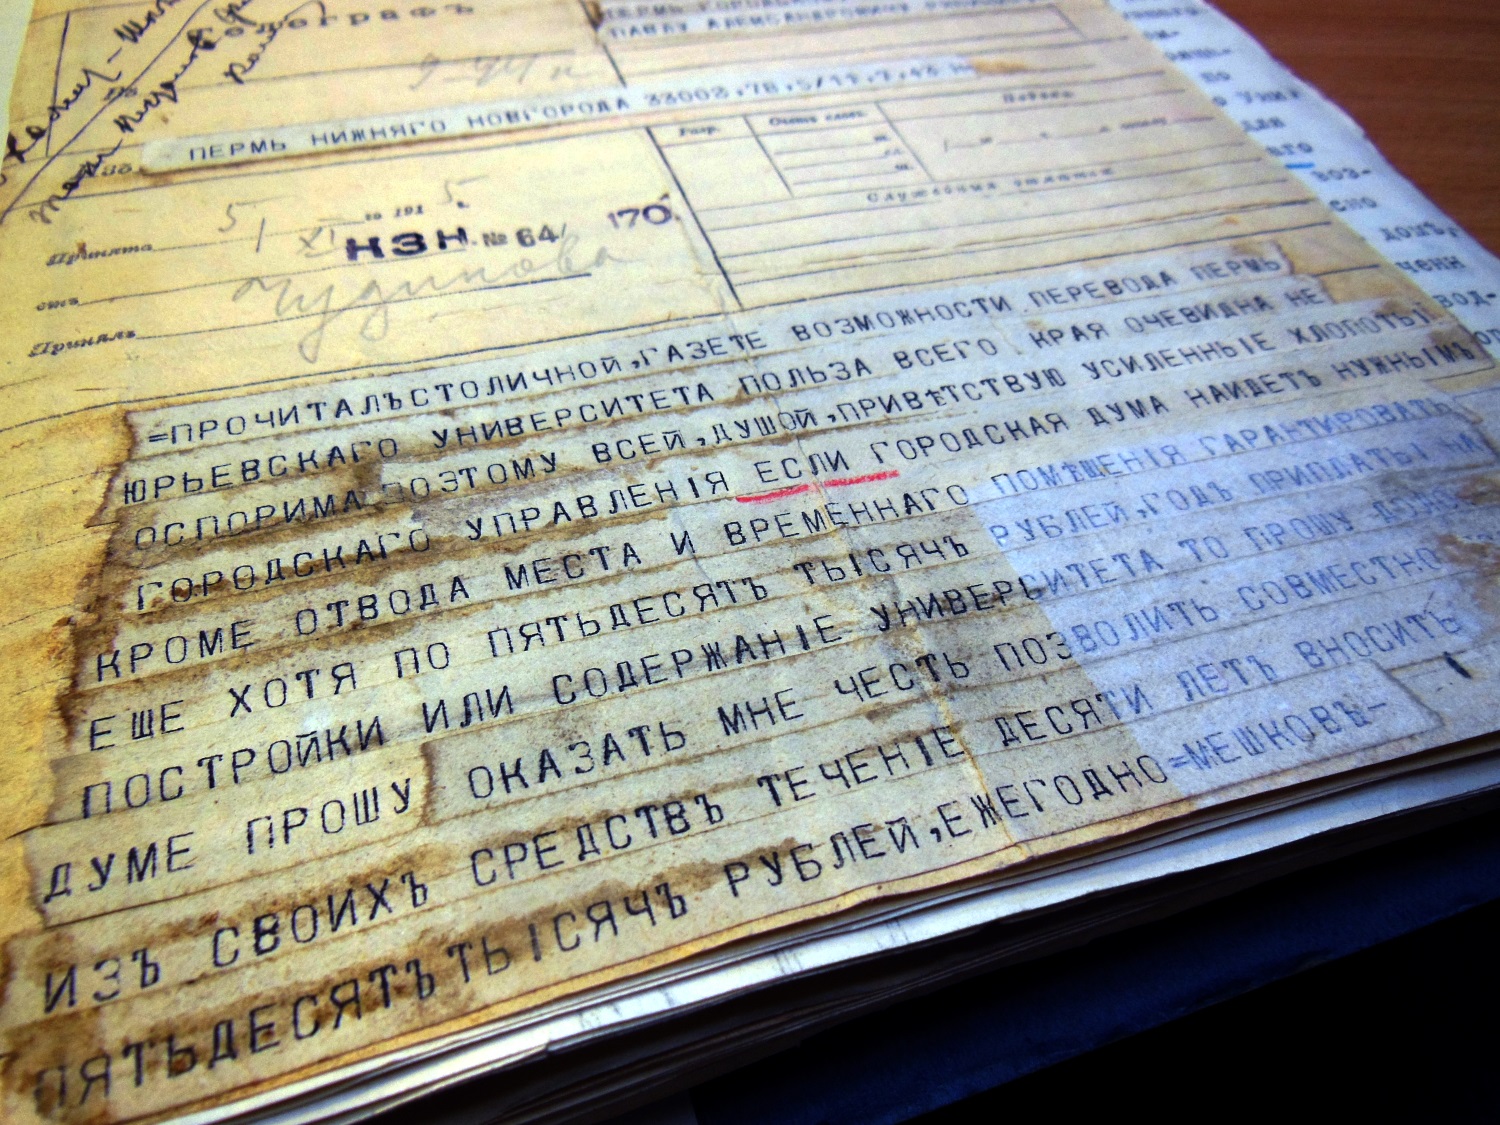 ПАВЛУ АЛЕКСАНДРОВИЧУ
ПЕРМЬ НИЖНЯГО НОВГОРОДА 33002,78,5/11,7,43 Н
Разр.
Принята
5/XI го 1915 г.
НЗН № 64/ 170
Служебныя отмѣтки
Принялъ Чудинова
=ПРОЧИТАЛЪСТОЛИЧНОЙ,ГАЗЕТЕ ВОЗМОЖНОСТИ ПЕРЕВОДА ПЕРМЬ
ЮРЬЕВСКАГО УНИВЕРСИТЕТА ПОЛЬЗА ВСЕГО КРАЯ ОЧЕВИДНА НЕ
ОСПОРИМА ПОЭТОМУ ВСЕЙ,ДУШОЙ,ПРИВѢТСТВУЮ УСИЛЕННЫЕ ХЛОПОТЫ
ГОРОДСКАГО УПРАВЛЕНІЯ ЕСЛИ ГОРОДСКАЯ ДУМА НАЙДЕТЪ НУЖНЫМЪ
КРОМЕ ОТВОДА МЕСТА И ВРЕМЕННАГО ПОМѢЩЕНІЯ ГАРАНТИРОВАТЬ
ЕШЕ ХОТЯ ПО ПЯТЬДЕСЯТЪ ТЫСЯЧЪ РУБЛЕЙ,ГОДЪ ПРИПЛАТЫ НА
ПОСТРОЙКИ ИЛИ СОДЕРЖАНІЕ УНИВЕРСИТЕТА ТО ПРОШУ
ДУМЕ ПРОШУ ОКАЗАТЬ МНЕ ЧЕСТЬ ПОЗВОЛИТЬ СОВМЕСТНО
ИЗЪ СВОИХЪ СРЕДСТВЪ ТЕЧЕНІЕ ДЕСЯТИ ЛЕТЪ ВНОСИТЬ
ПЯТЬДЕСЯТЪТЫСЯЧЪ РУБЛЕЙ,ЕЖЕГОДНО=МЕШКОВЪ-